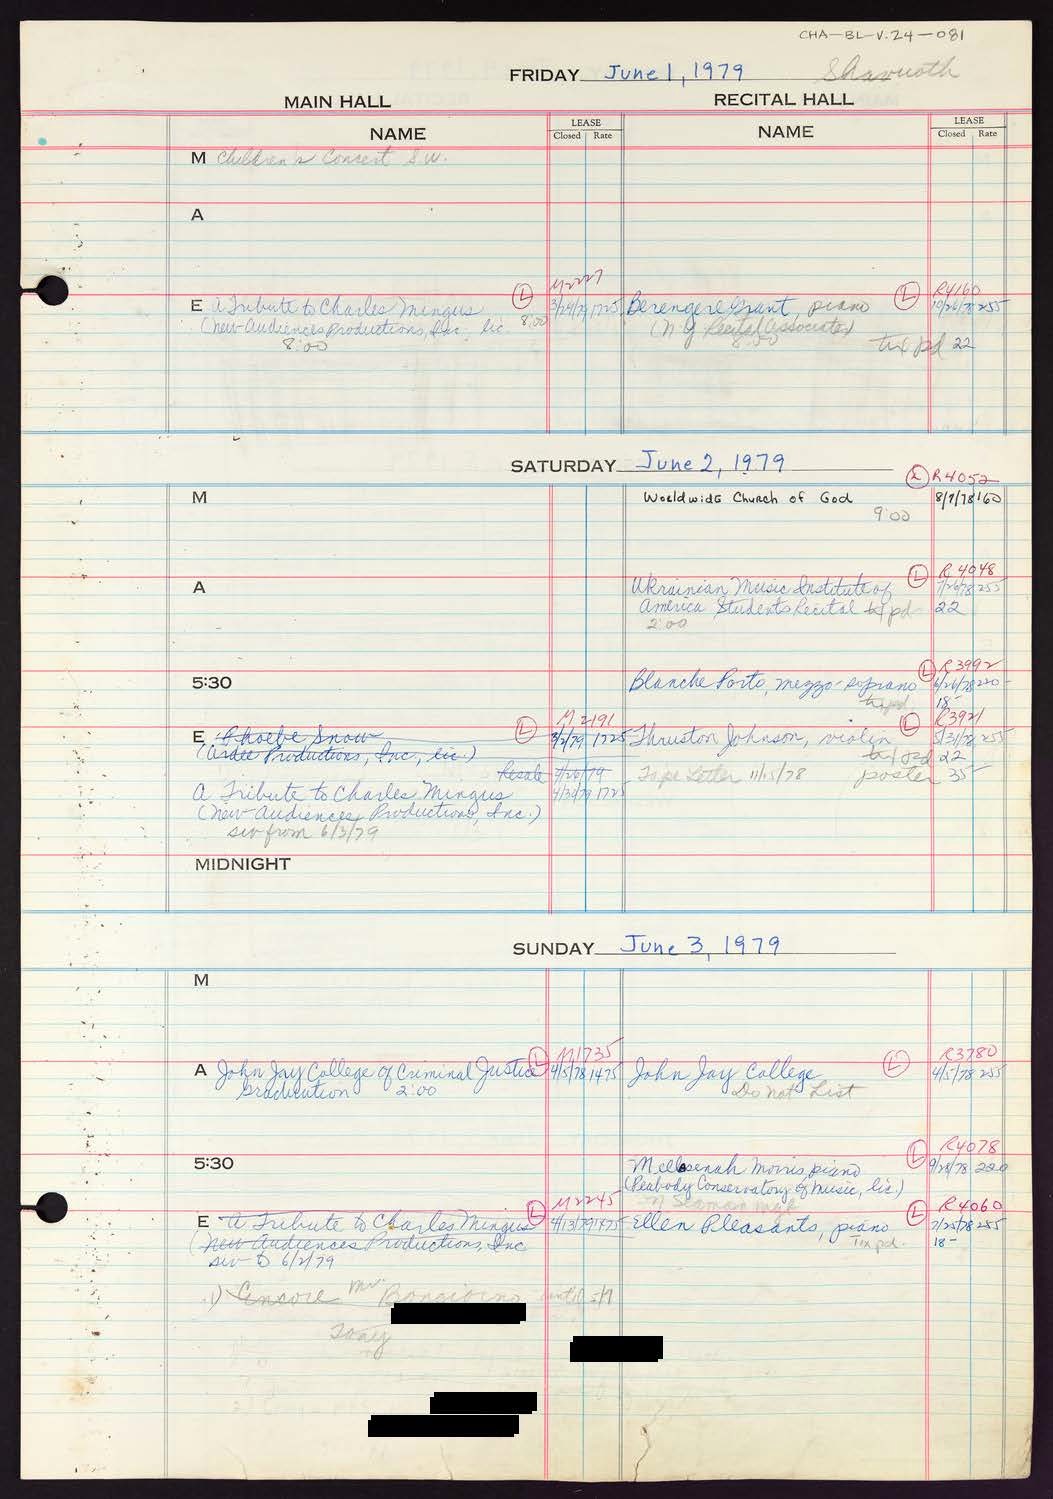 CHA-BL-V.24-081
FRIDAY June 1, 1979 Shavuoth
MAIN HALL RECITAL HALL
NAME LEASE Closed Rate NAME LEASE Closed Rate
M Children's Concert S.W.
A
M2227 R4160
E A Tribute to Charles Mingus L 8:00 3/29/79 1725 Berengere Grant, piano L 10/26/78 255
(New Audiences Productions, Inc. lic.
(N Y Recital Associates)
8:00 8:00 tix pd 22
SATURDAY June 2, 1979
L R4052
M Worldwide Church of God 8/7/78 160
9:00
L R4048
A Ukrainian Music Institute of 7/26/78 255
America Students Recital tx pd 22
2:00
L R3992
5:30 Blanche Porto, mezzo-soprano 6/26/78 220-
tx pd. 18-
M2191 L R3921
E Phoebe Snow L 3/2/79 1725 Thruston Johnson, violin 5/31/78 255
(Ardee Productions, Inc, lic.) tx pd 22
Resale 4/26/79 Tape Letter 11/15/78 poster 35-
A Tribute to Charles Mingus 4/30/79 1725
(New Audiences Productions, Inc.)
sw from 6/3/79
MIDNIGHT
SUNDAY June 3, 1979
M
L M1735 R3780
A John Jay College of Criminal Justice 4/5/78 1475 John Jay College L 4/5/78 255
Graduation 2:00 Do Not List
L R4078
5:30 Mellasenah Morris, piano 9/28/78 220
(Peabody Conservatory of Music, lic.)
L M2245 L R4060
E A Tribute to Charles Mingus 4/13/79 1475 Ellen Pleasants, piano 7/25/78 255
(New Audiences Productions, Inc Tix pd. 18-
sw to 6/2/79
1) Encore Mr. Bongiovino until 5/7
Tony